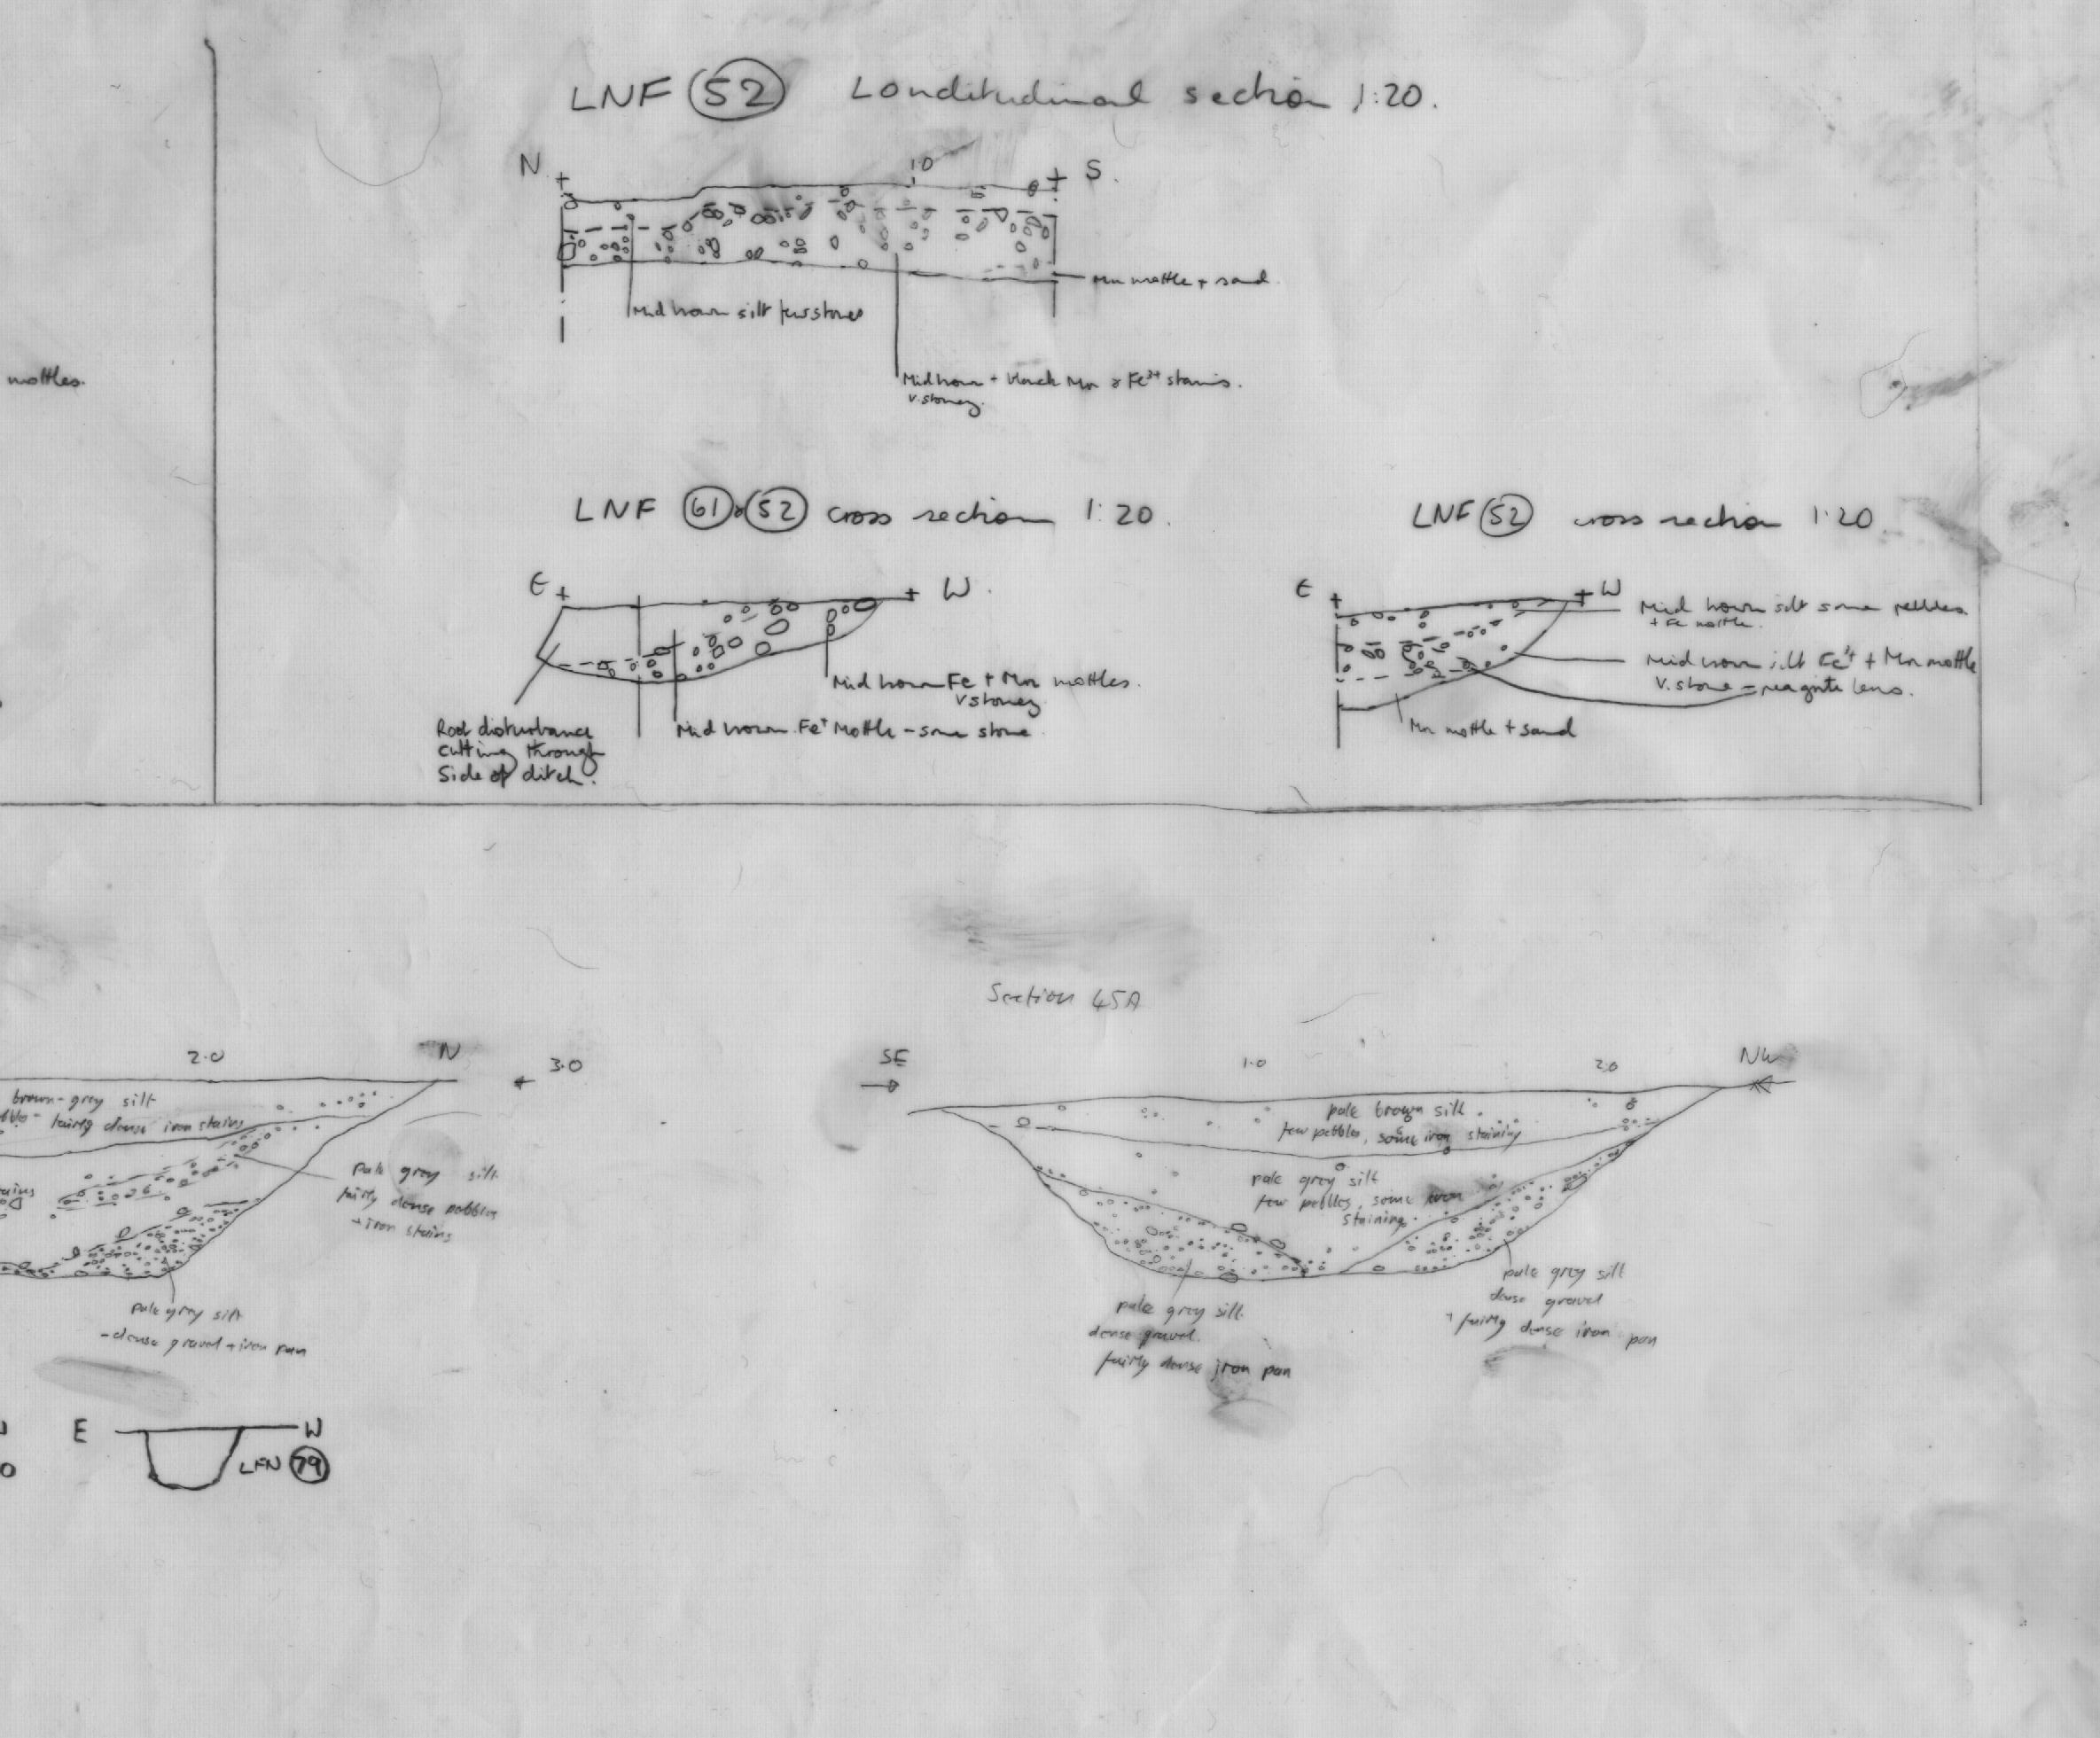 LNF 52 Londitudinal section 1:20.
N
1.0
S.
Mn mottle + sand
Mid brown silt few stones
Mid brown + black Mn & Fe3+ stains.
v. stoney.
mottles.
LNF 61 & 52 cross section 1:20.
E
W.
Mid brown Fe + Mn mottles.
v stoney
Mid brown Fe+ Mottle - some stone
Root disturbance
cutting through
Side of ditch.
LNF 52 cross section 1:20.
E
W
Mid brown silt some pebbles
+ Fe mottle.
Mid brown silt Fe3+ + Mn mottle
v. stone = lens.
Mn mottle + sand
2.0
N
3.0
brown-grey silt
fairly dense iron stains
pale grey silt
fairly dense pebbles
+ iron stains
pale grey silt
- dense gravel + iron pan
E
W
LFN 79
Section 45A
SE
1.0
2.0
NW
pale brown silt.
few pebbles, some iron staining
pale grey silt
few pebbles, some iron
staining.
pale grey silt.
dense gravel.
fairly dense iron pan
pale grey silt
dense gravel
+ fairly dense iron pan